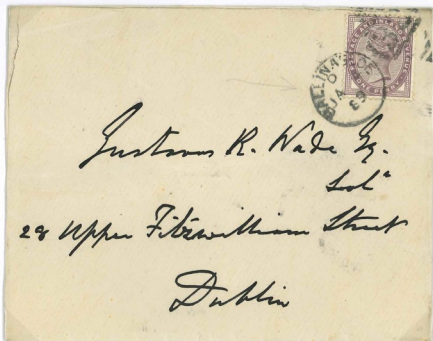 BALLINA
JA 30
89
Gustavus R. Wade Esq.
Solr
28 Upper Fitzwilliam Street
Dublin